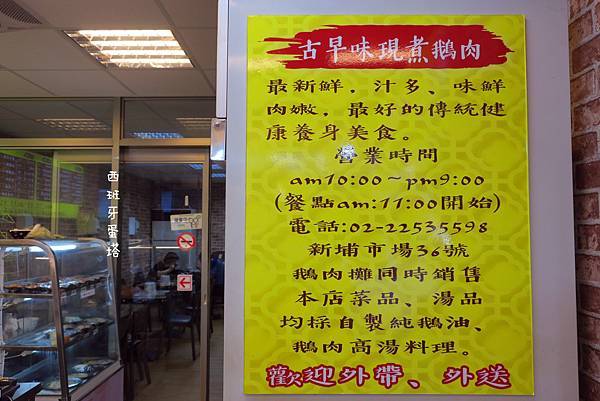 古早味現煮鵝肉
最新鮮，汁多、味鮮
肉嫩，最好的傳統健
康養身美食。
營業時間
am10:00～pm9:00
(餐點am:11:00開始)
電話:02-22535598
新埔市場36號
鵝肉攤同時銷售
本店菜品、湯品
均採自製純鵝油、
鵝肉高湯料理。
歡迎外帶、外送
西班牙蛋塔